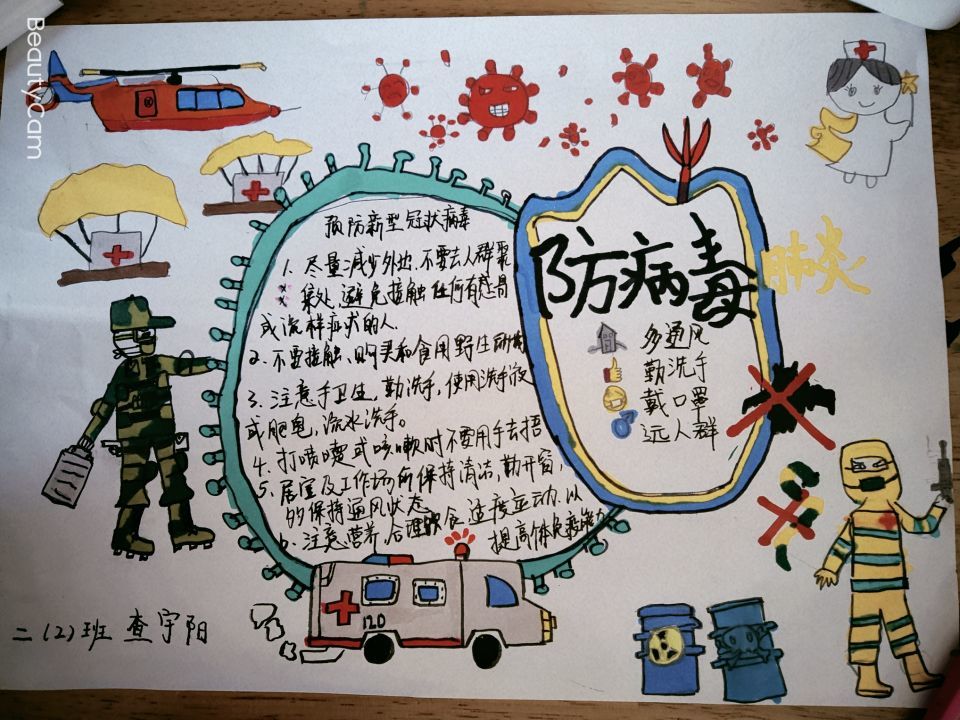 BeautyCam
预防新型冠状病毒
1. 尽量减少外边.不要去人群聚
集处,避免接触任何有感冒
或流样症状的人.
2. 不要接触、购买和食用野生动物
3. 注意手卫生,勤洗手,使用洗手液
或肥皂,流水洗手。
4. 打喷嚏或咳嗽时不要用手去捂
5. 居室及工作场所保持清洁,勤开窗,
多保持通风状态
6. 注意营养,合理饮食,适度运动.以
提高体免疫能力
防病毒
肺炎
多通风
勤洗手
戴口罩
远人群
120
二(2)班 查宇阳